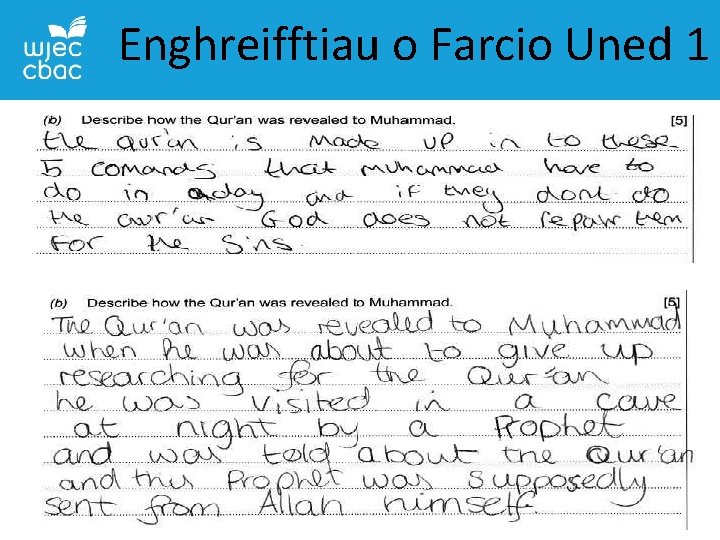 wjec
cbac
Enghreifftiau o Farcio Uned 1
(b) Describe how the Qur'an was revealed to Muhammad. [5]
the qur'an is made up in to these
5 comands that muhammad have to
do in a day and if they dont do
the qur'an God does not repair them
For the Sins.
(b) Describe how the Qur'an was revealed to Muhammad. [5]
The Qur'an was revealed to Muhammad
when he was about to give up
researching for the Qur'an
he was visited in a cave
at night by a Prophet
and was told about the Qur'an
and this Prophet was supposedly
sent from Allah himself.